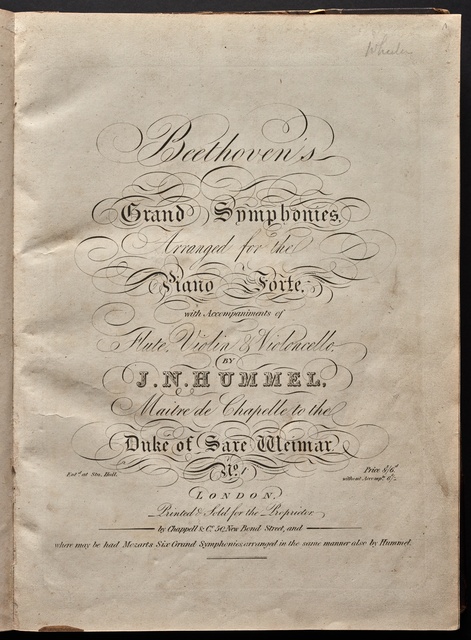 Wheeler
Beethoven's
Grand Symphonies,
Arranged for the
Piano Forte,
with Accompaniments of
Flute, Violin & Violoncello.
BY
J. N. HUMMEL,
Maitre de Chapelle to the
Duke of Saxe Weimar.
No. 1
Ent.d at Sta. Hall.
Price 8/6.d
without Accomp.ts
LONDON.
Printed & Sold for the Proprietor
by Chappell & Co. 50, New Bond Street, and
where may be had Mozarts Six Grand Symphonies, arranged in the same manner also by Hummel.